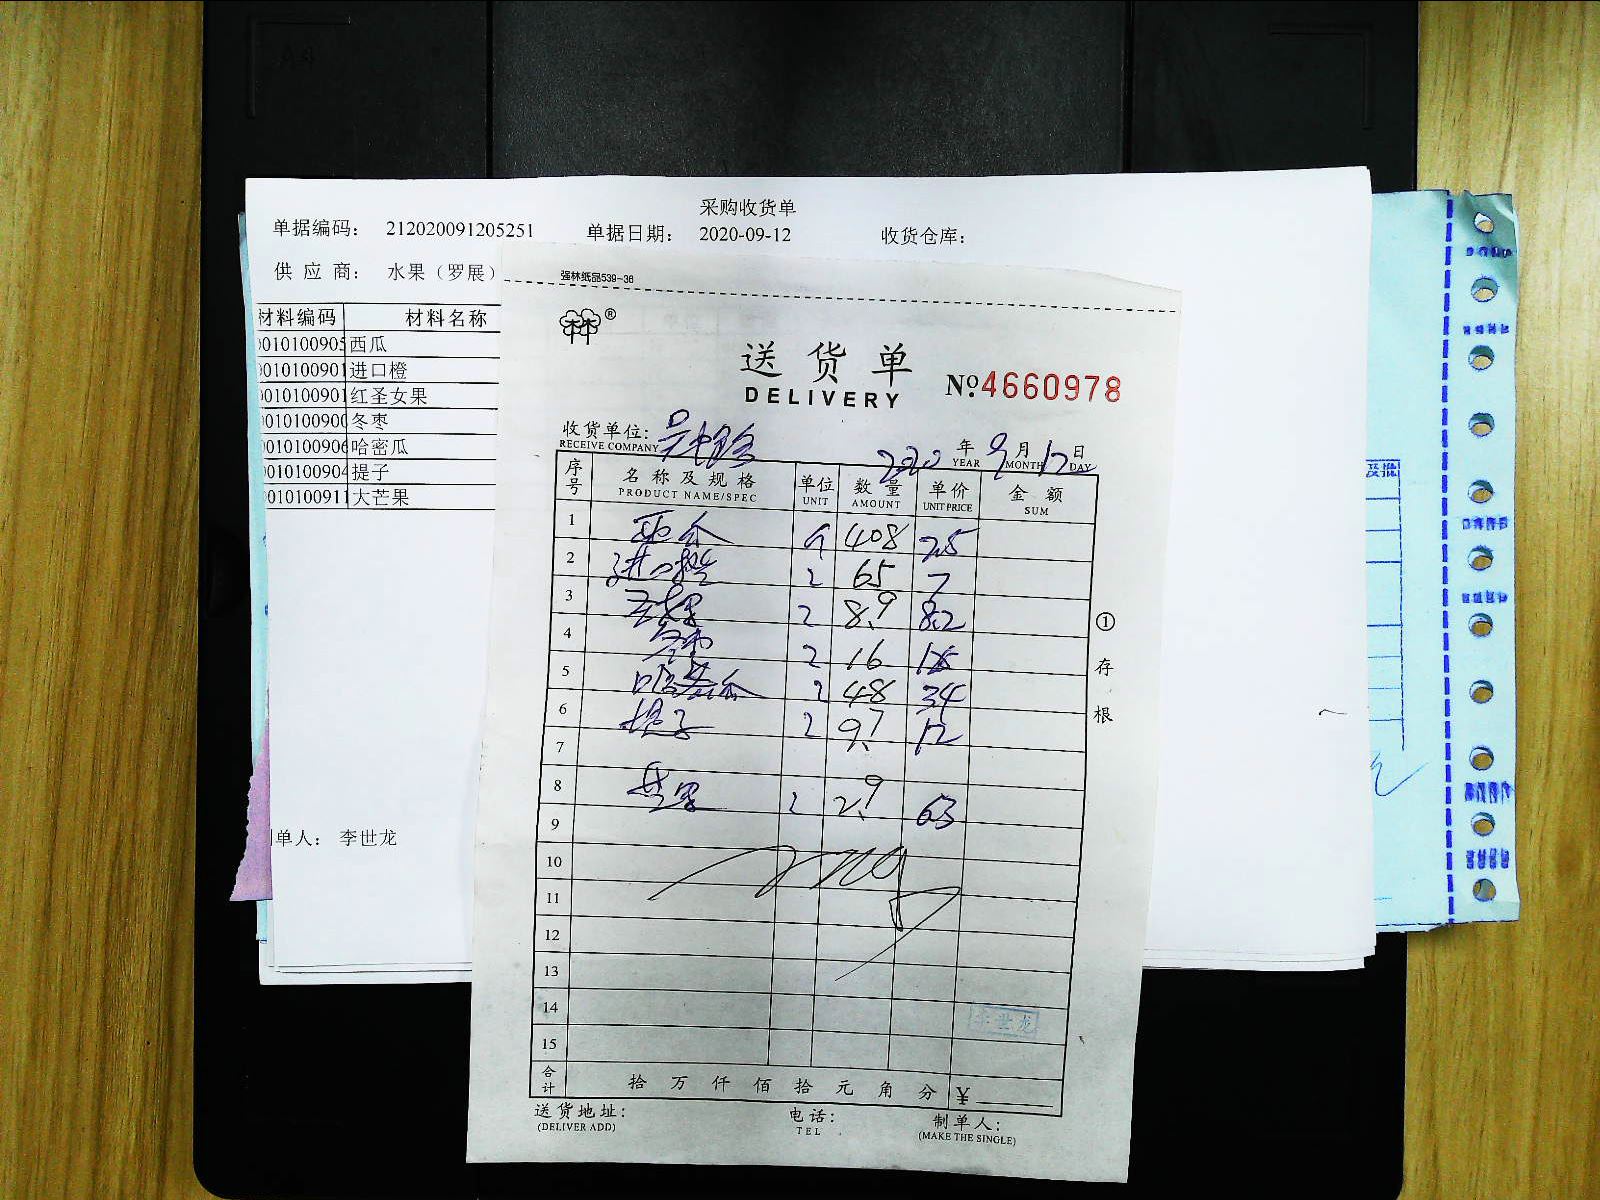 采购收货单
单据编码： 212020091205251 单据日期： 2020-09-12 收货仓库：
供 应 商： 水果（罗展）
材料编码 材料名称
010100905 西瓜
010100901 进口橙
010100901 红圣女果
010100900 冬枣
010100906 哈密瓜
010100904 提子
010100911 大芒果
单人： 李世龙
强林纸品539-36
林®
送 货 单
DELIVERY
№ 4660978
收货单位：
RECEIVE COMPANY
2020 年 9 月 12 日
YEAR MONTH DAY
序号 名 称 及 规 格 单位 数 量 单价 金 额
PRODUCT NAME/SPEC UNIT AMOUNT UNIT PRICE SUM
1 西瓜 408 2.5
2 进口橙 2 65 7
3 2 8.9 8.2
4 2 16
5 哈密瓜 2 48 34
6 提子 2 9.7 12
7
8 芒果 2 2.9 63
9
10
11
12
13
14
15
李世龙
合计 拾 万 仟 佰 拾 元 角 分 ¥
送货地址： 电话： 制单人：
(DELIVER ADD) TEL (MAKE THE SINGLE)
① 存 根
及批